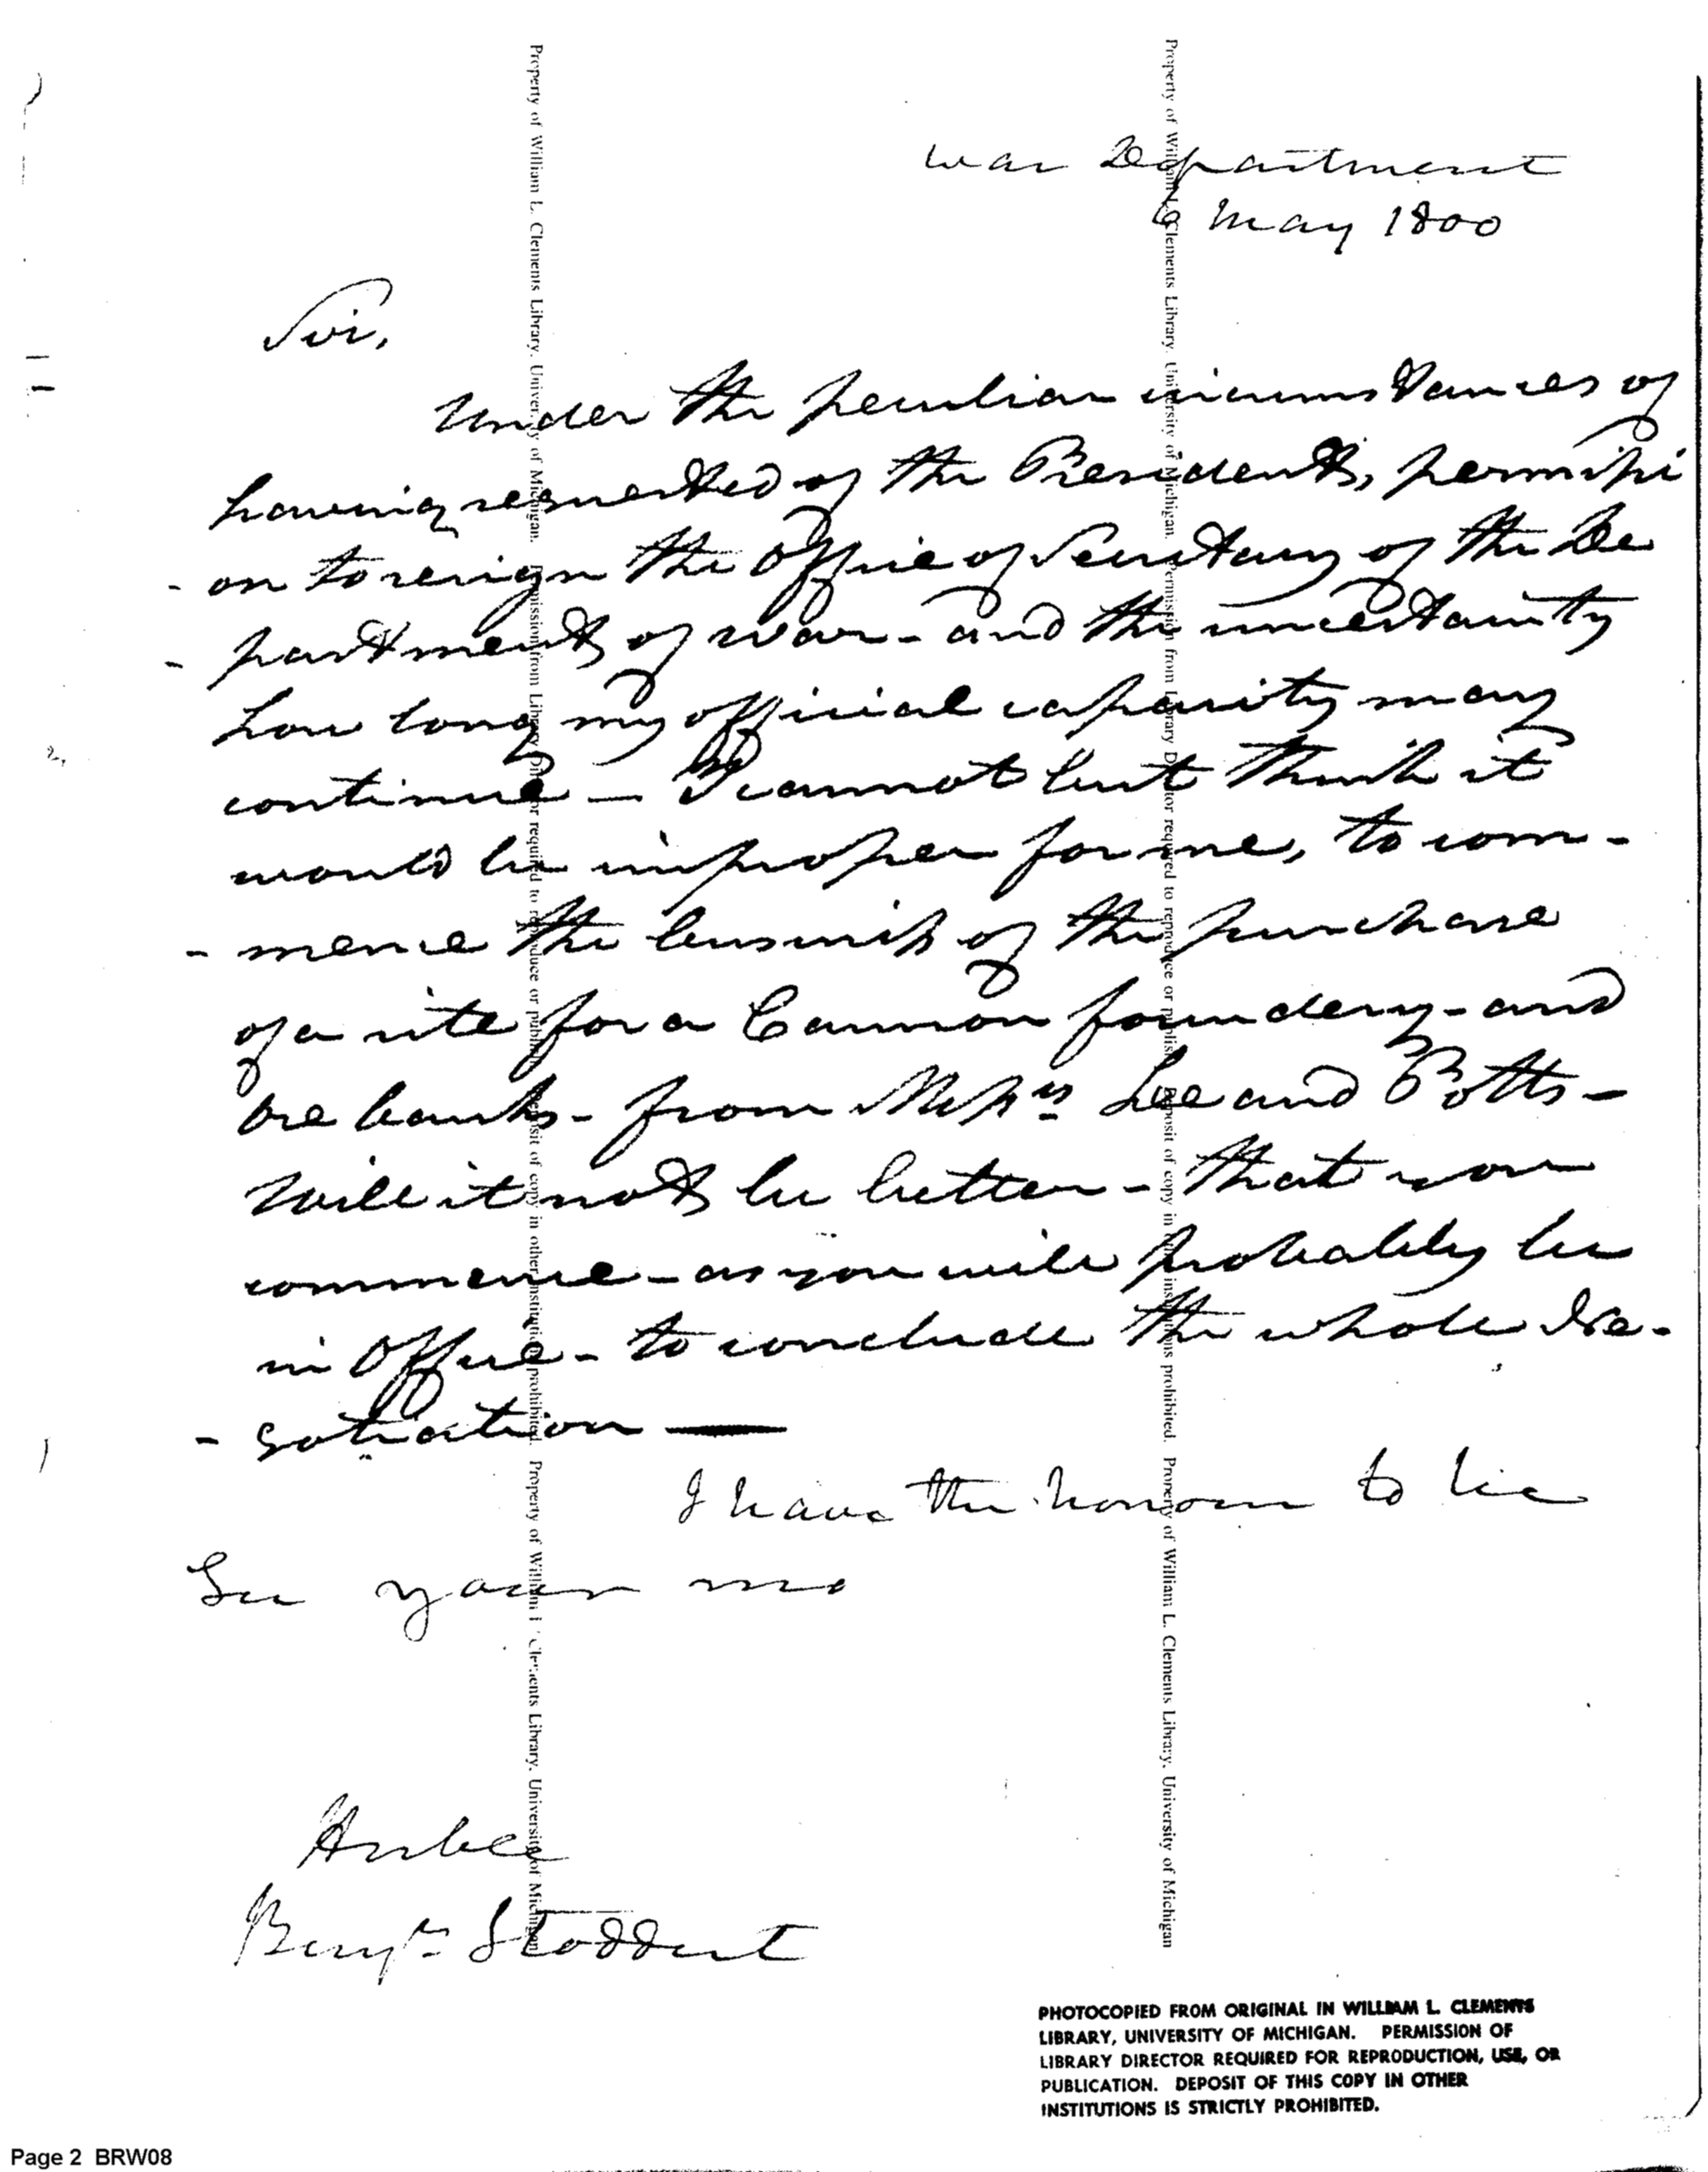 War Department
6 May 1800
Sir,
Under the peculiar circumstances of
having requested of the President, permissi
- on to resign the Office of Secretary of the De
- partment of war - and the uncertainty
how long my official capacity may
continue — I cannot but think it
would be improper for me, to com-
- mence the business of the purchase
of a site for a Cannon foundery - and
ore banks - from Messrs Lee and Potts -
Will it not be better - that you
commence - as you will probably be
in Office - to conclude the whole Ne-
- gotiation —
I have the honour to be
Sir your mo
Honble
Benjn Stoddert
Property of William L. Clements Library, University of Michigan. Permission from Library Director required to reproduce or publish. Deposit of copy in other institutions prohibited. Property of William L. Clements Library, University of Michigan
Property of William L. Clements Library, University of Michigan. Permission from Library Director required to reproduce or publish. Deposit of copy in other institutions prohibited. Property of William L. Clements Library, University of Michigan
PHOTOCOPIED FROM ORIGINAL IN WILLIAM L. CLEMENTS
LIBRARY, UNIVERSITY OF MICHIGAN. PERMISSION OF
LIBRARY DIRECTOR REQUIRED FOR REPRODUCTION, USE, OR
PUBLICATION. DEPOSIT OF THIS COPY IN OTHER
INSTITUTIONS IS STRICTLY PROHIBITED.
Page 2 BRW08